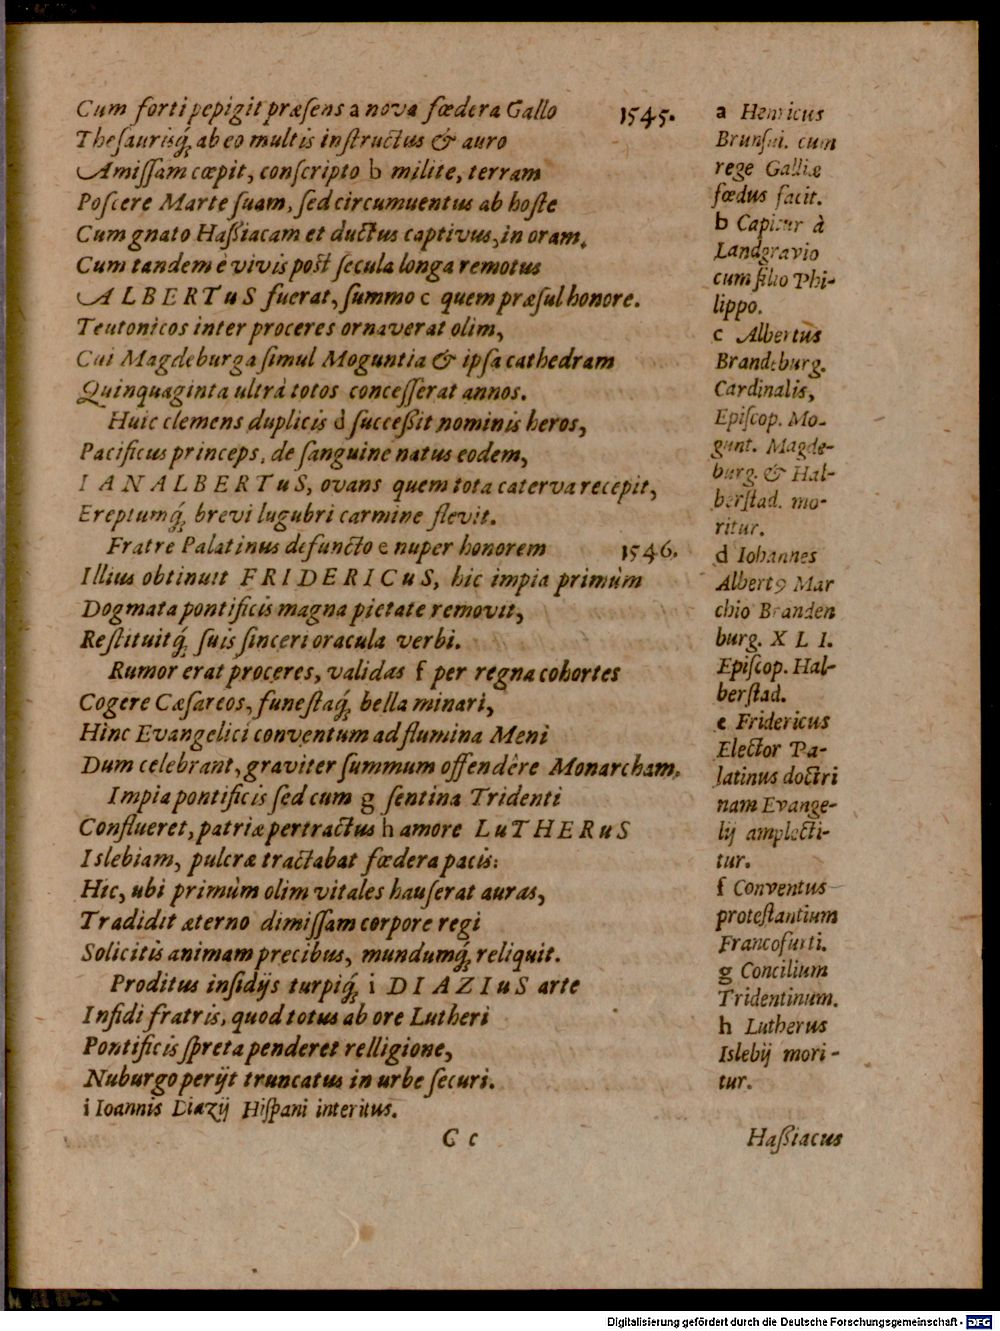 Cum forti pepigit præſens a nova fœdera Gallo
Theſaurisq́;, ab eo multis inſtructus & auro
Amiſſam cœpit, conſcripto b milite, terram
Poſcere Marte ſuam, ſed circumuentus ab hoſte
Cum gnato Haßiacam et ductus captivus, in oram,
Cum tandem è vivis poſt ſecula longa remotus
ALBERTuS fuerat, ſummo c quem præſul honore.
Teutonicos inter proceres ornaverat olim,
Cui Magdeburga ſimul Moguntia & ipſa cathedram
Quinquaginta ultrà totos conceſſerat annos.
Huic clemens duplicis d ſucceßit nominis heros,
Pacificus princeps, de ſanguine natus eodem,
IANALBERTuS, ovans quem tota caterva recepit,
Ereptumq́; brevi lugubri carmine flevit.
Fratre Palatinus defuncto e nuper honorem
Illius obtinuit FRIDERICuS, hic impia primùm
Dogmata pontificis magna pietate removit,
Reſtituitq́; ſuis ſinceri oracula verbi.
Rumor erat proceres, validas f per regna cohortes
Cogere Cæſareos, funeſtaq́; bella minari,
Hinc Evangelici conventum ad flumina Meni
Dum celebrant, graviter ſummum offendêre Monarcham.
Impia pontificis ſed cum g ſentina Tridenti
Conflueret, patriæ pertractus h amore LuTHERuS
Islebiam, pulcræ tractabat fœdera pacis:
Hic, ubi primùm olim vitales hauſerat auras,
Tradidit æterno dimiſſam corpore regi
Solicitis animam precibus, mundumq́; reliquit.
Proditus inſidijs turpiq́; i DIAZIuS arte
Infidi fratris, quod totus ab ore Lutheri
Pontificis ſpreta penderet relligione,
Nuburgo perijt truncatus in urbe ſecuri.
i Ioannis Diazij Hiſpani interitus.
1545.
1546.
a Henricus
Brunſui. cum
rege Galliæ
fœdus facit.
b Capitur à
Landgravio
cum filio Phi-
lippo.
c Albertus
Brandeburg.
Cardinalis,
Epiſcop. Mo-
gunt. Magde-
burg. & Hal-
berſtad. mo-
ritur.
d Iohannes
Albertꝰ Mar
chio Branden
burg. XLI.
Epiſcop. Hal-
berſtad.
e Fridericus
Elector Pa-
latinus doctri
nam Evange-
lij amplecti-
tur.
f Conventus
proteſtantium
Francofurti.
g Concilium
Tridentinum.
h Lutherus
Islebij mori-
tur.
C c
Haßiacus
Digitalisierung gefördert durch die Deutsche Forschungsgemeinschaft - DFG